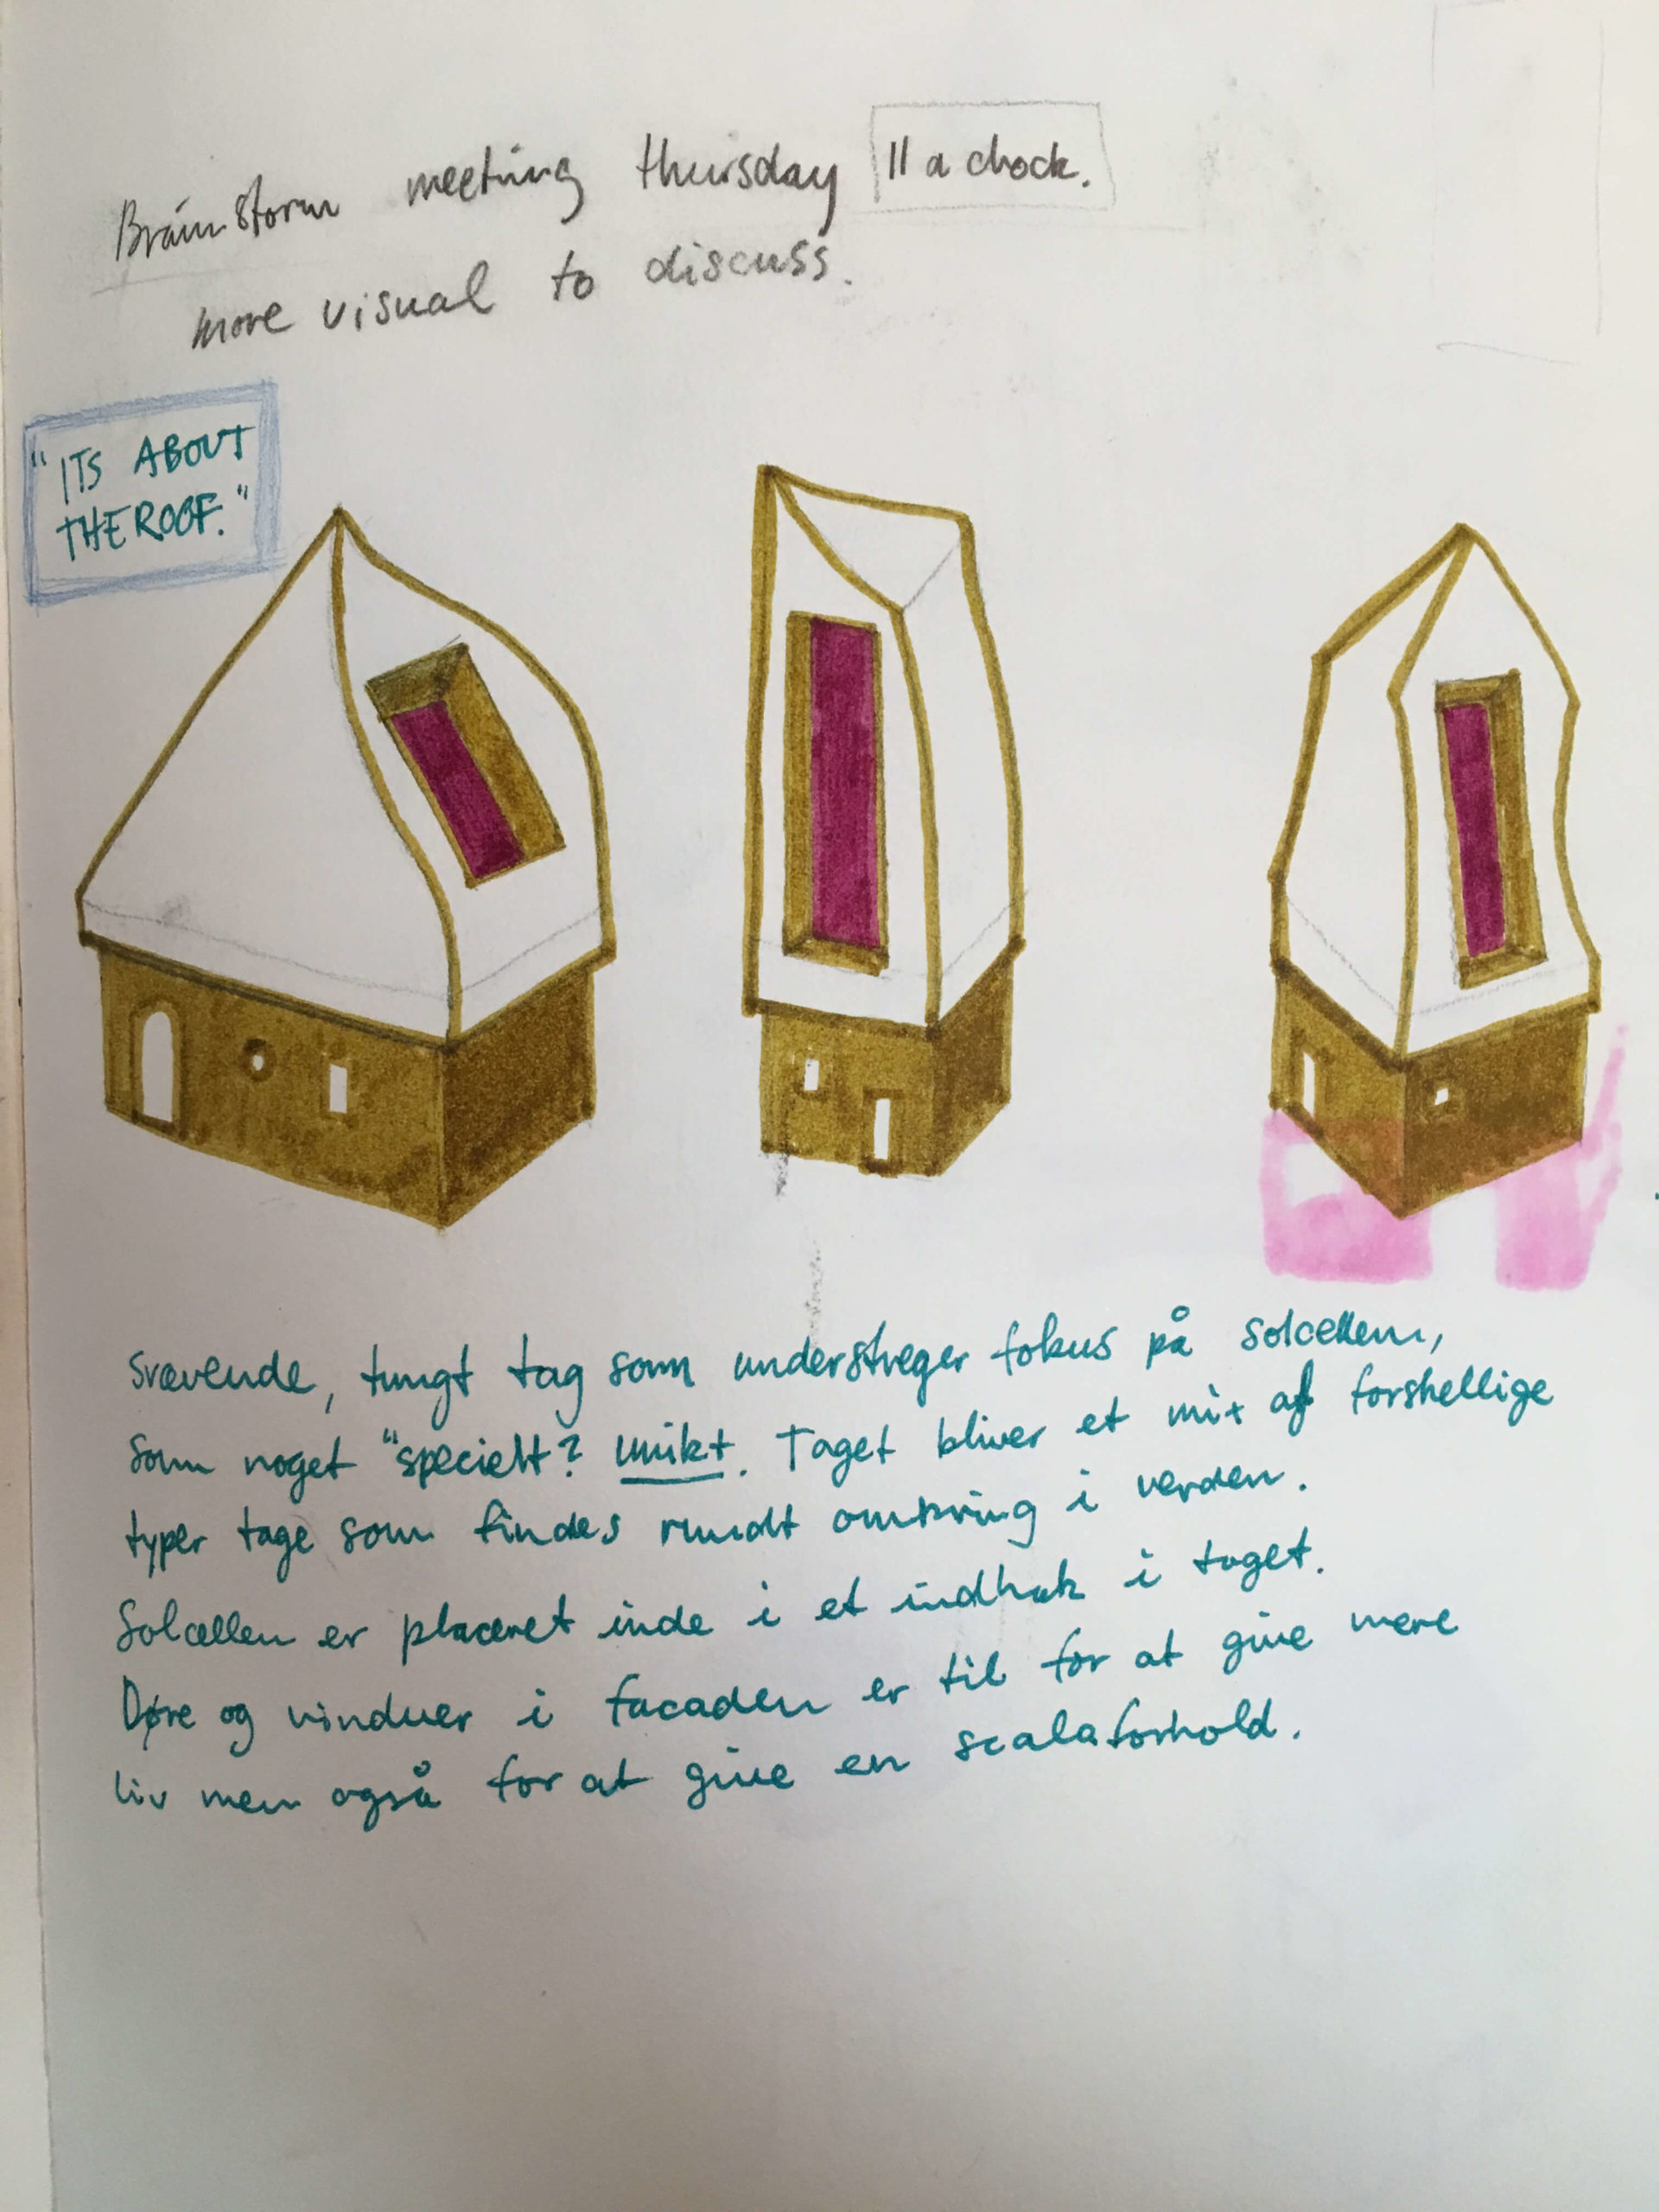 Brainstorm meeting thursday 11 a clock.
more visual to discuss.
"ITS ABOUT
THE ROOF."
Svævende, tungt tag som understreger fokus på solcellen,
som noget "specielt? unikt. Taget bliver et mix af forskellige
typer tage som findes rundt omkring i verden.
Solcellen er placeret inde i et indhak i taget.
Døre og vinduer i facaden er til for at give mere
liv men også for at give en scalaforhold.